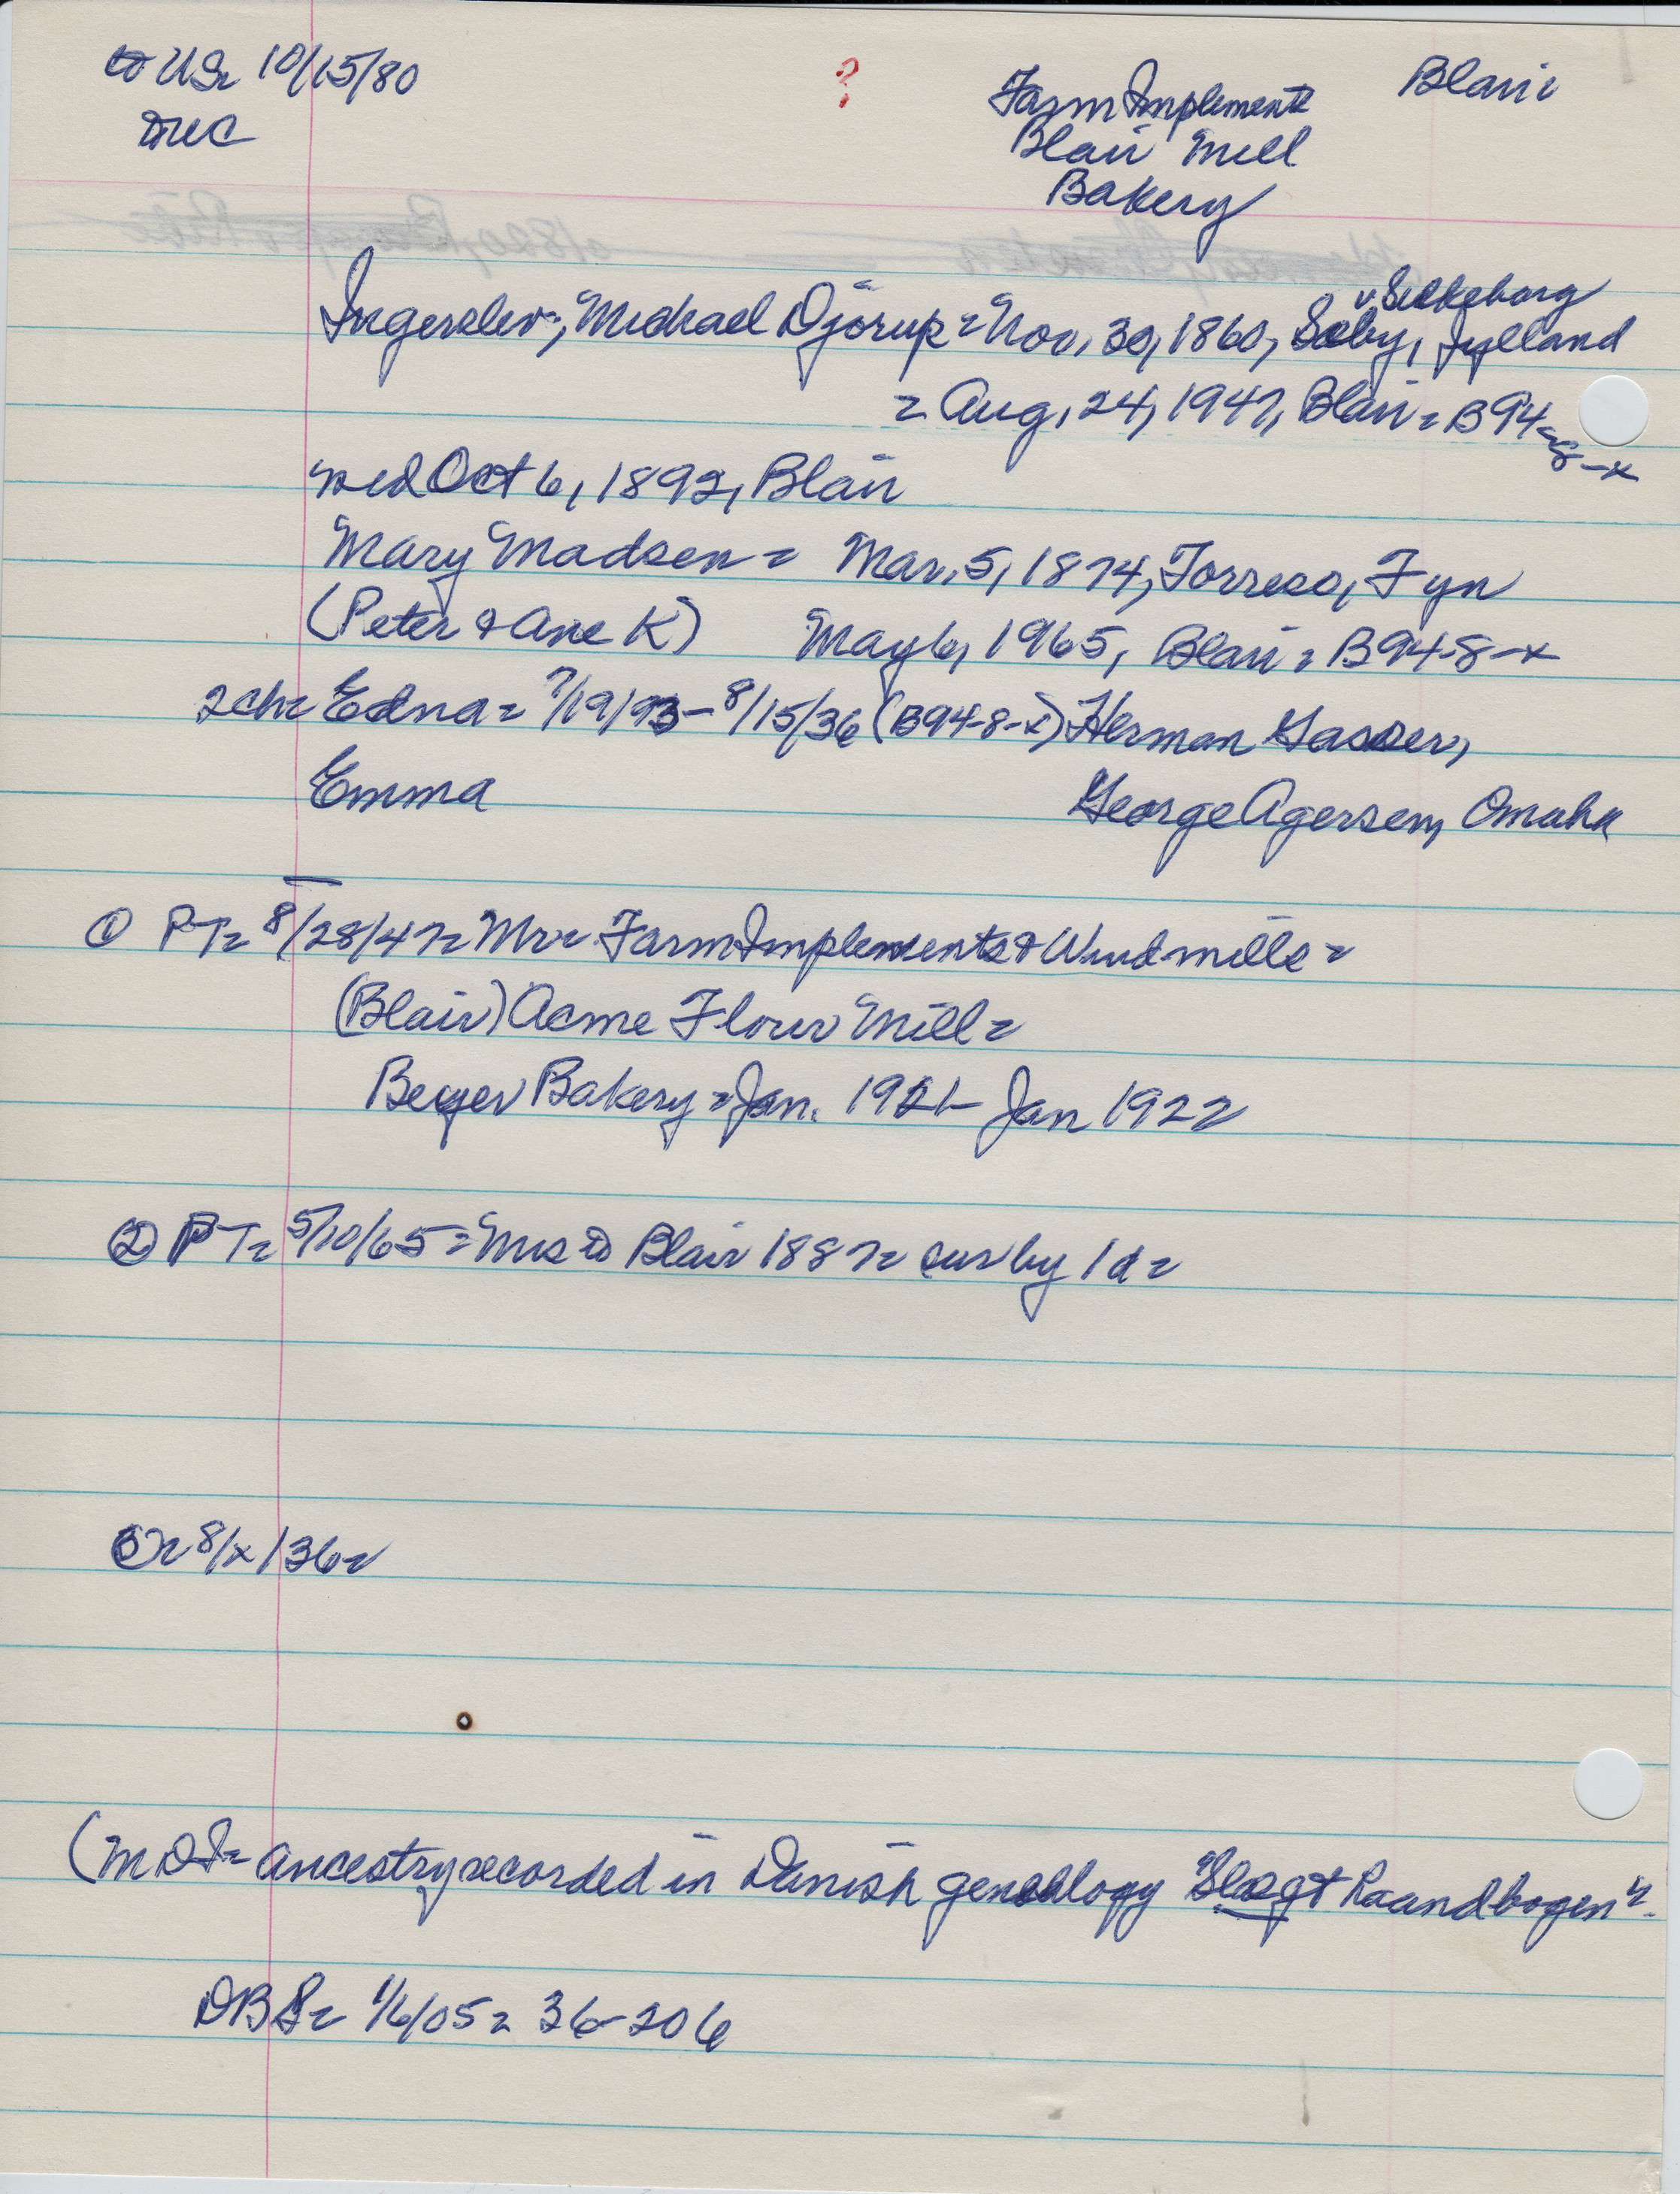 to US= 10/15/80
DUC
?
Farm Implements
Blair Mill
Bakery
Blair
Ingerslev, Michael Djörup = Nov. 30, 1860, Seby, v Silkeborg Jylland
= Aug. 24, 1947, Blair = B94-8-x
med Oct 6, 1892, Blair
Mary Madsen = Mar. 5, 1874, Torreso, Fyn
(Peter & Ane K) May 6, 1965, Blair = B94-8-x
2ch= Edna = 7/19/93 - 8/15/36 (B94-8-x) Herman Gasser,
Emma George Agersen, Omaha
① PT= 8/28/47= Mr= Farm Implements & Windmills =
(Blair) Acme Flour Mill =
Beyer Bakery = Jan. 1921 - Jan 1922
② PT= 5/10/65 = Mrs to Blair 1887= sur by 1d =
③= 8/x/36=
(MDI= ancestry recorded in Danish genealogy "Slegt Haandbogen".
DBS= 1/6/05 = 36-206